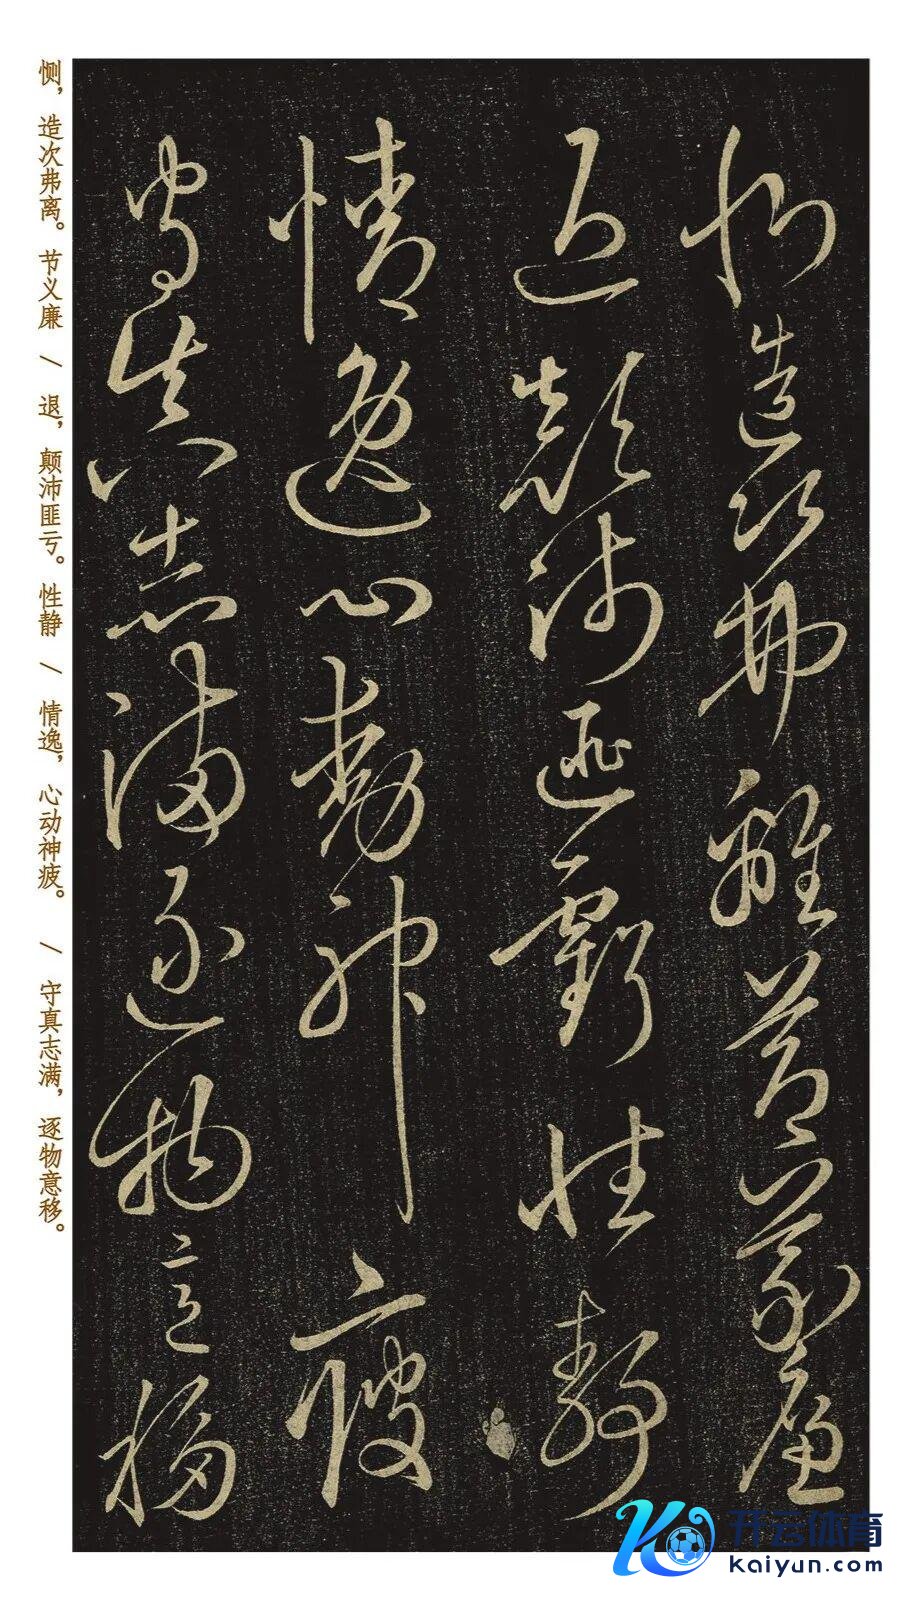 恻造次弗离节义廉
退颠沛匪亏性静
情逸心动神疲
守真志满逐物意移
恻，造次弗离。节义廉 / 退，颠沛匪亏。性静 / 情逸，心动神疲。 / 守真志满，逐物意移。
开云体育
kaiyun.com